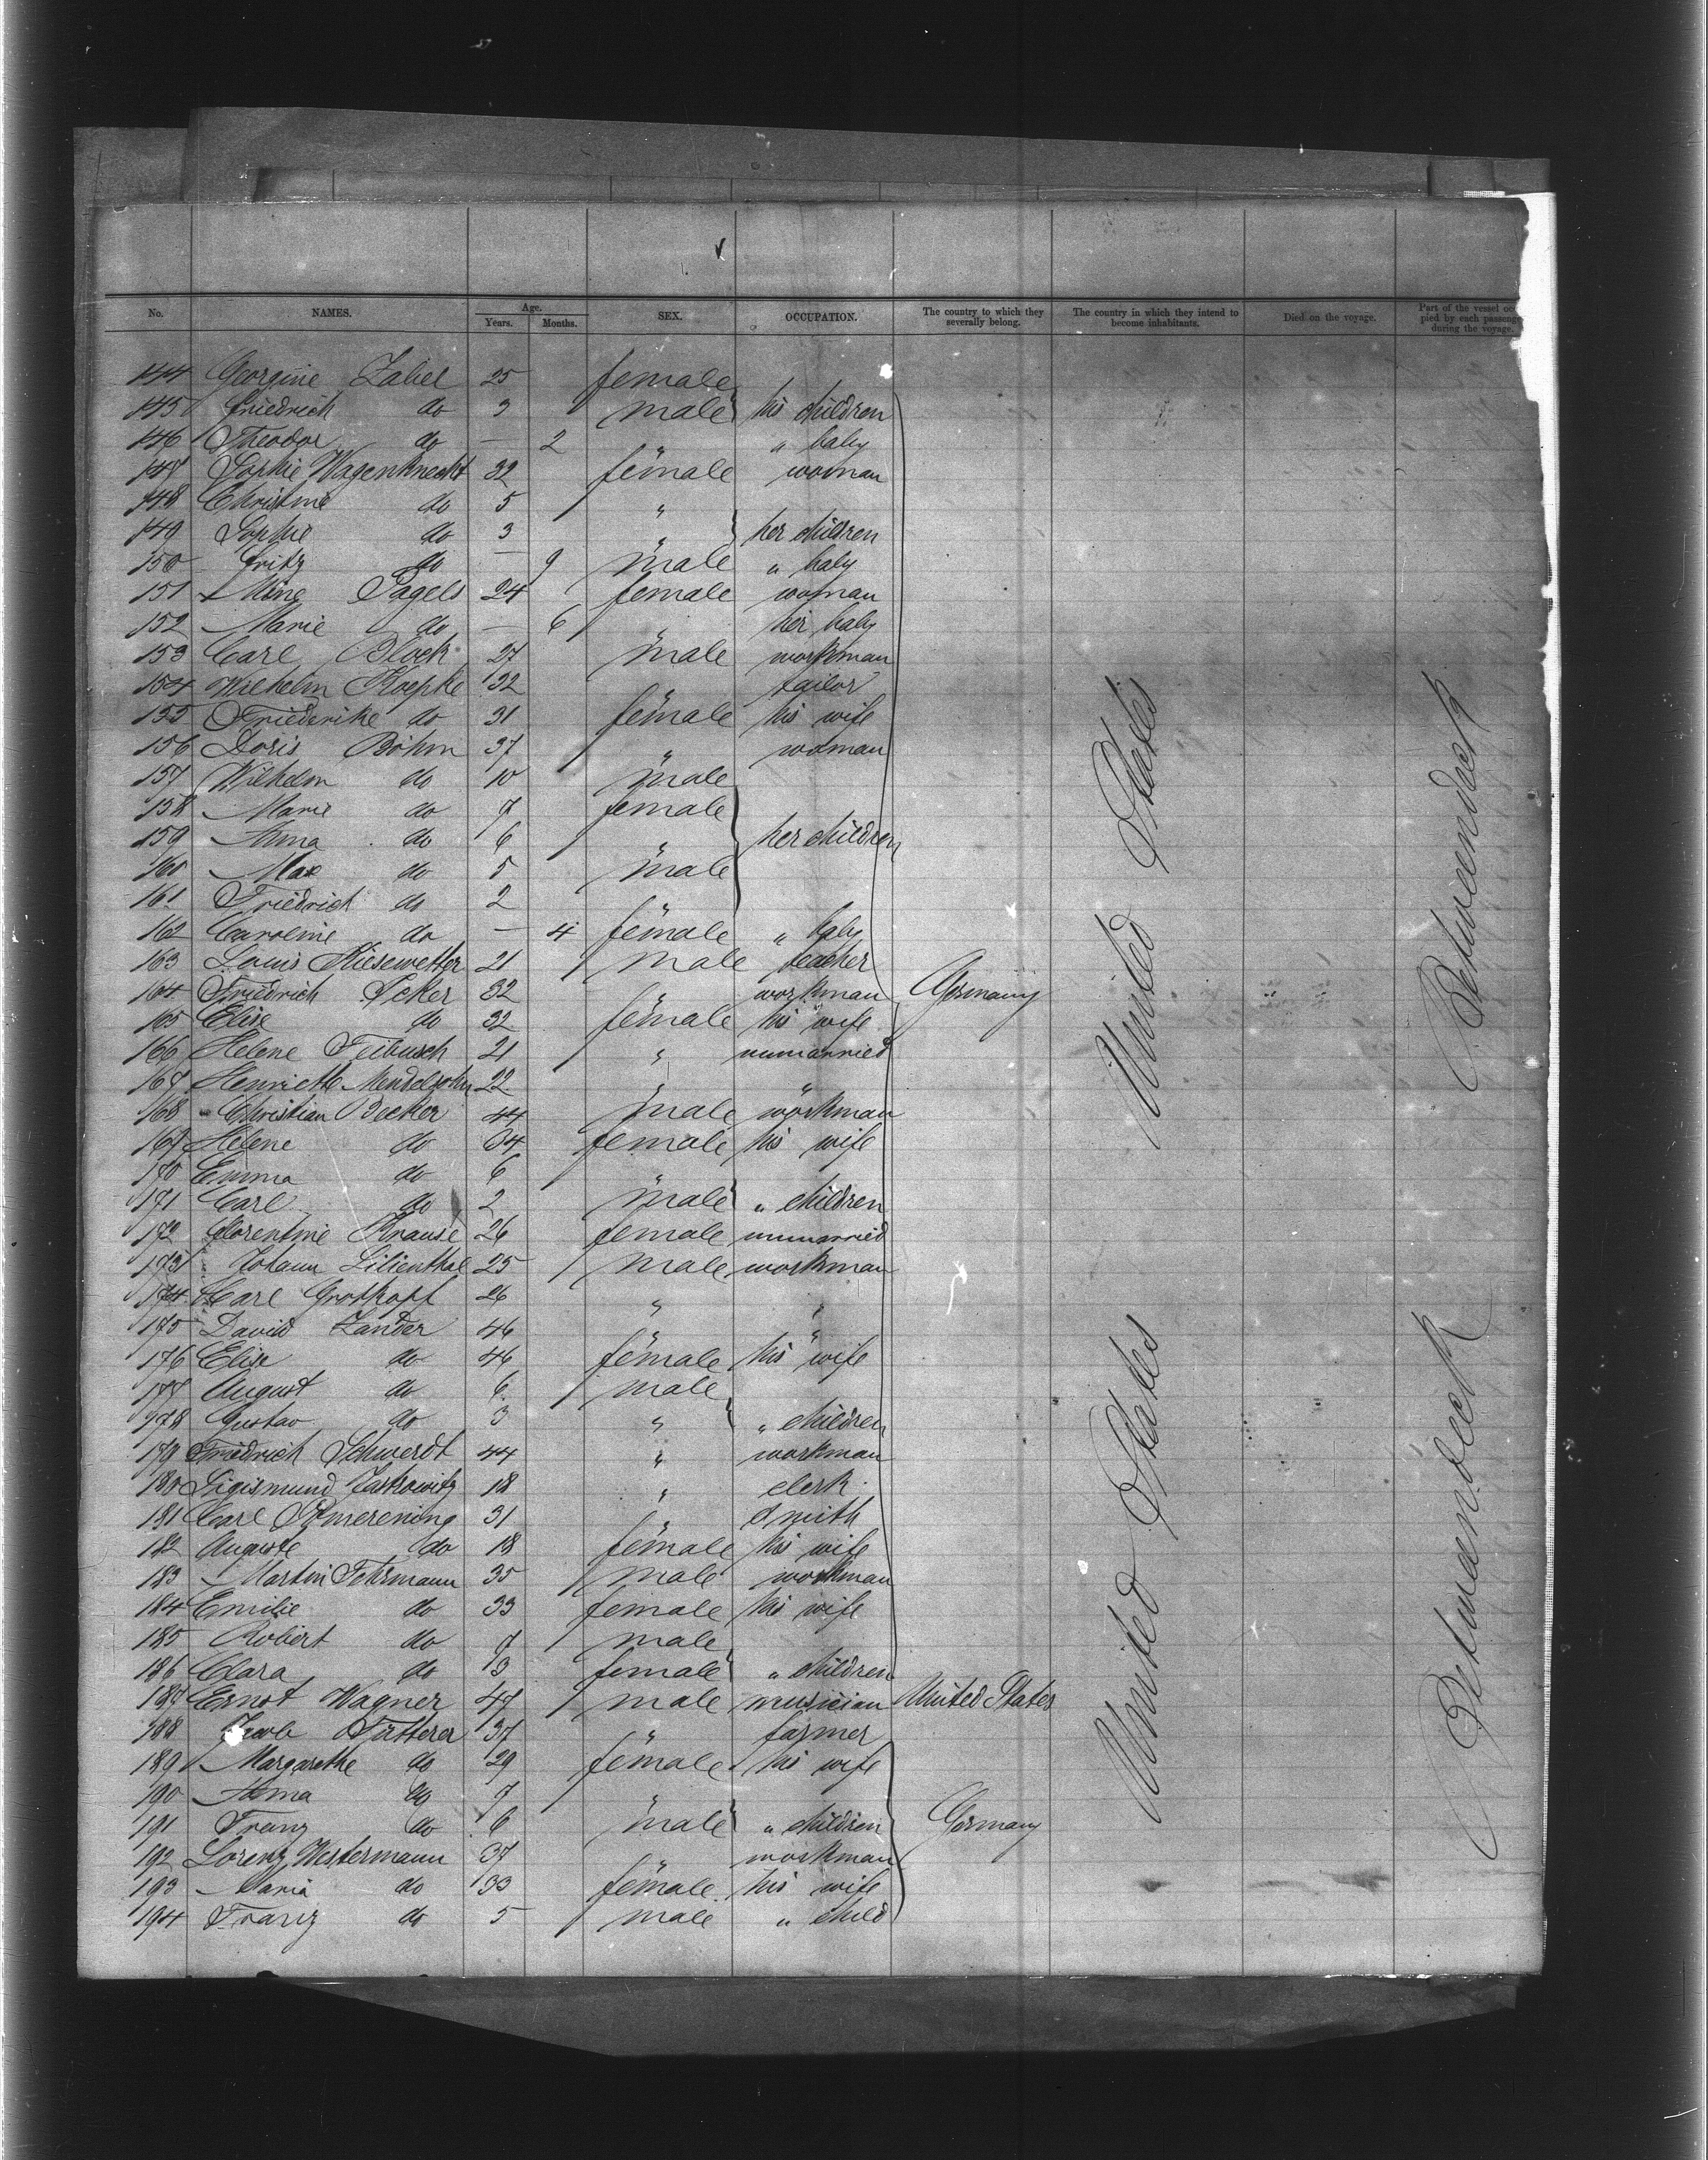 No. NAMES. Age. Years. Months. SEX. OCCUPATION. The country to which they severally belong. The country in which they intend to become inhabitants. Died on the voyage. Part of the vessel during the voyage.
144 Georgine Zabel 25 female
145 Friedrich do 3 male his children
146 Theodor do — 2 " " baby
147 Sophie Wagenknecht 32 female woman
148 Christine do 5 "
149 Sophie do 3 " her children
150 Fritz do — 9 male " baby
151 Mine Pagels 24 female woman
152 Marie do — 6 " her baby
153 Carl Block 27 male workman
154 Wilhelm Koepke 32 " tailor
155 Friederike do 31 female his wife
156 Doris Böhm 37 " woman
157 Wilhelm do 10 male
158 Marie do 7 female
159 Anna do 6 " her children
160 Max do 5 male
161 Friedrich do 2 "
162 Caroline do — 4 female " baby
163 Louis Kiesewetter 21 male teacher
164 Friedrich Acker 32 " workman Germany
165 Elise do 32 female his wife
166 Helene Teibusch 21 " unmarried
167 Henriette Mendelsohn 22 " "
168 Christian Becker 44 male workman
169 Helene do 34 female his wife
170 Emma do 6 "
171 Carl do 2 male " children
172 Florentine Krause 26 female unmarried
173 Johann Lilienthal 25 male workman
174 Carl Grotkopf 26 " "
175 David Zander 46 " "
176 Elise do 46 female his wife
177 August do 6 male
178 Gustav do 3 " " children
179 Friedrich Schwerdt 44 " workman
180 Sigismund Jaskowitz 18 " clerk
181 Carl 31 " Smith
182 Auguste do 18 female his wife
183 Martin Fehrmann 35 male workman
184 Emilie do 33 female his wife
185 Robert do 7 male
186 Clara do 3 female " children
187 Ernst Wagner 47 male musician United States
188 Jacob Fatterer 37 " farmer
189 Margarethe do 29 female his wife
190 Anna do 7 "
191 Franz do 6 male " children Germany
192 Lorenz Westermann 37 " workman
193 Maria do 33 female his wife
194 Franz do 5 male " child
United States
United States
Betweendeck
Betweendeck